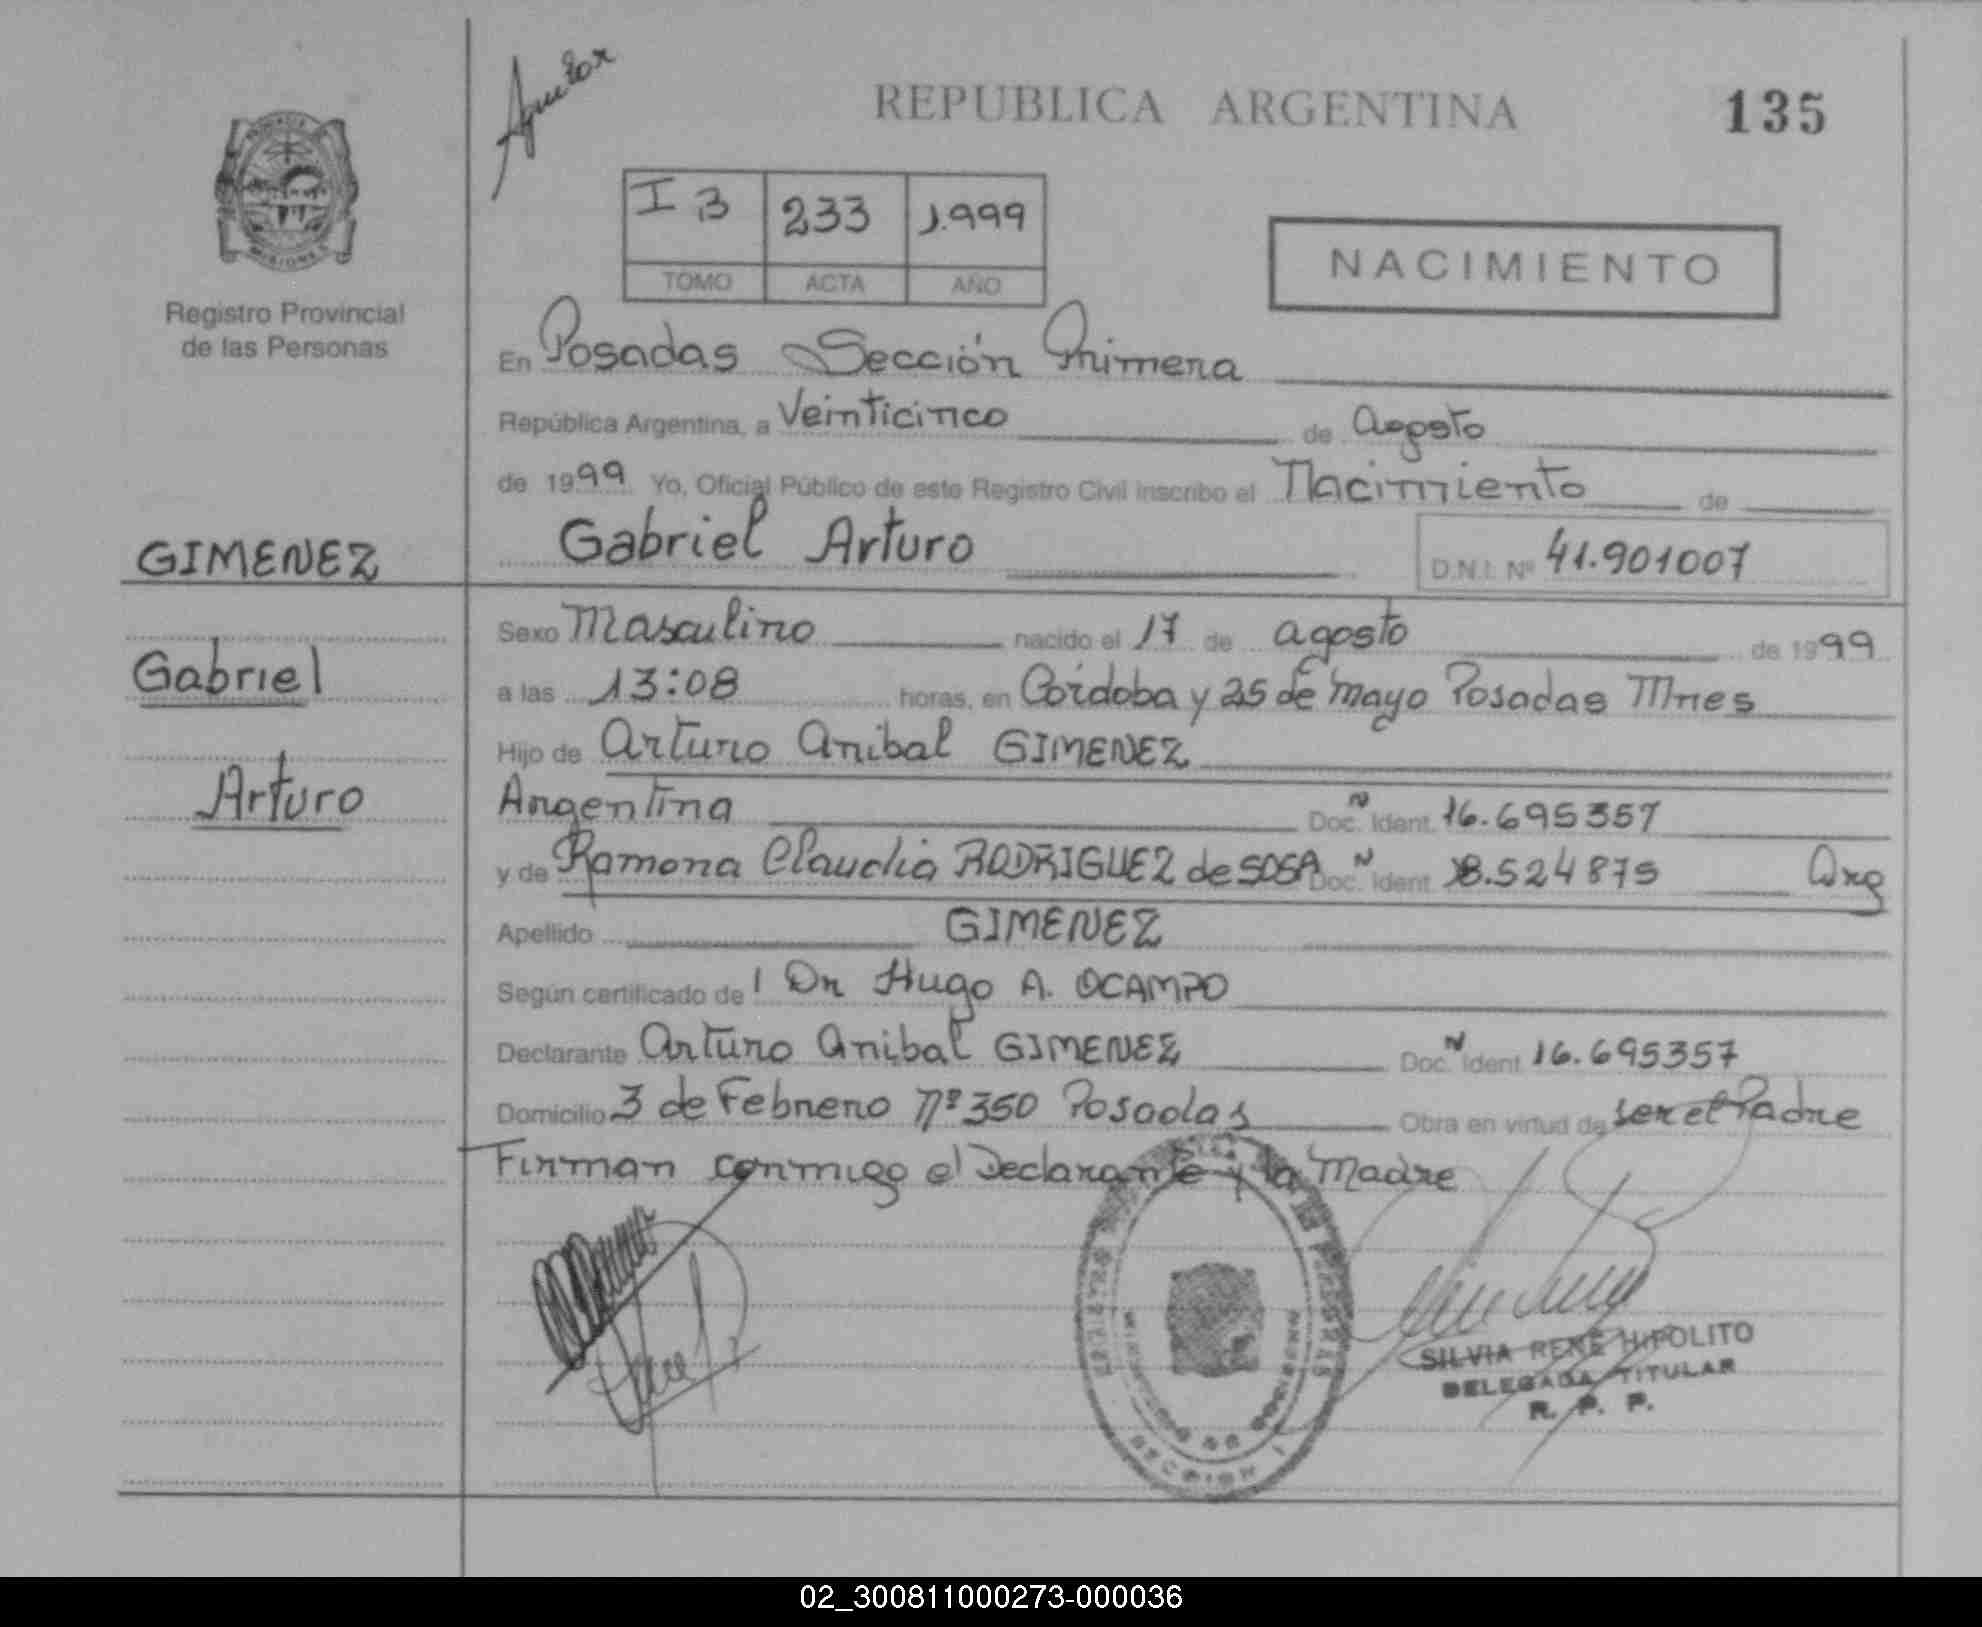 Aguilar
REPUBLICA ARGENTINA 135
I B 233 1.999
TOMO ACTA AÑO
NACIMIENTO
PROVINCIA
MISIONES
Registro Provincial
de las Personas
En Posadas Sección Primera
República Argentina, a Veinticinco de Agosto
de 1999 Yo, Oficial Público de este Registro Civil inscribo el Nacimiento de
GIMENEZ
Gabriel
Arturo
Gabriel Arturo D.N.I. Nº 41.901007
Sexo Masculino nacido el 17 de agosto de 1999
a las 13:08 horas, en Córdoba y 25 de Mayo Posadas Mnes
Hijo de Arturo Anibal GIMENEZ
Argentina Doc. N Ident. 16.695357
y de Ramona Claudia RODRIGUEZ de SOSA Doc. N Ident. 18.524875 Arg
Apellido GIMENEZ
Según certificado de Dr Hugo A. OCAMPO
Declarante Arturo Anibal GIMENEZ Doc. N Ident. 16.695357
Domicilio 3 de Febrero Nº 350 Posadas Obra en virtud de ser el Padre
Firman conmigo el Declarante y la Madre
SILVIA RENE HIPOLITO
DELEGADA TITULAR
R. P. P.
SECCION 1
02_300811000273-000036